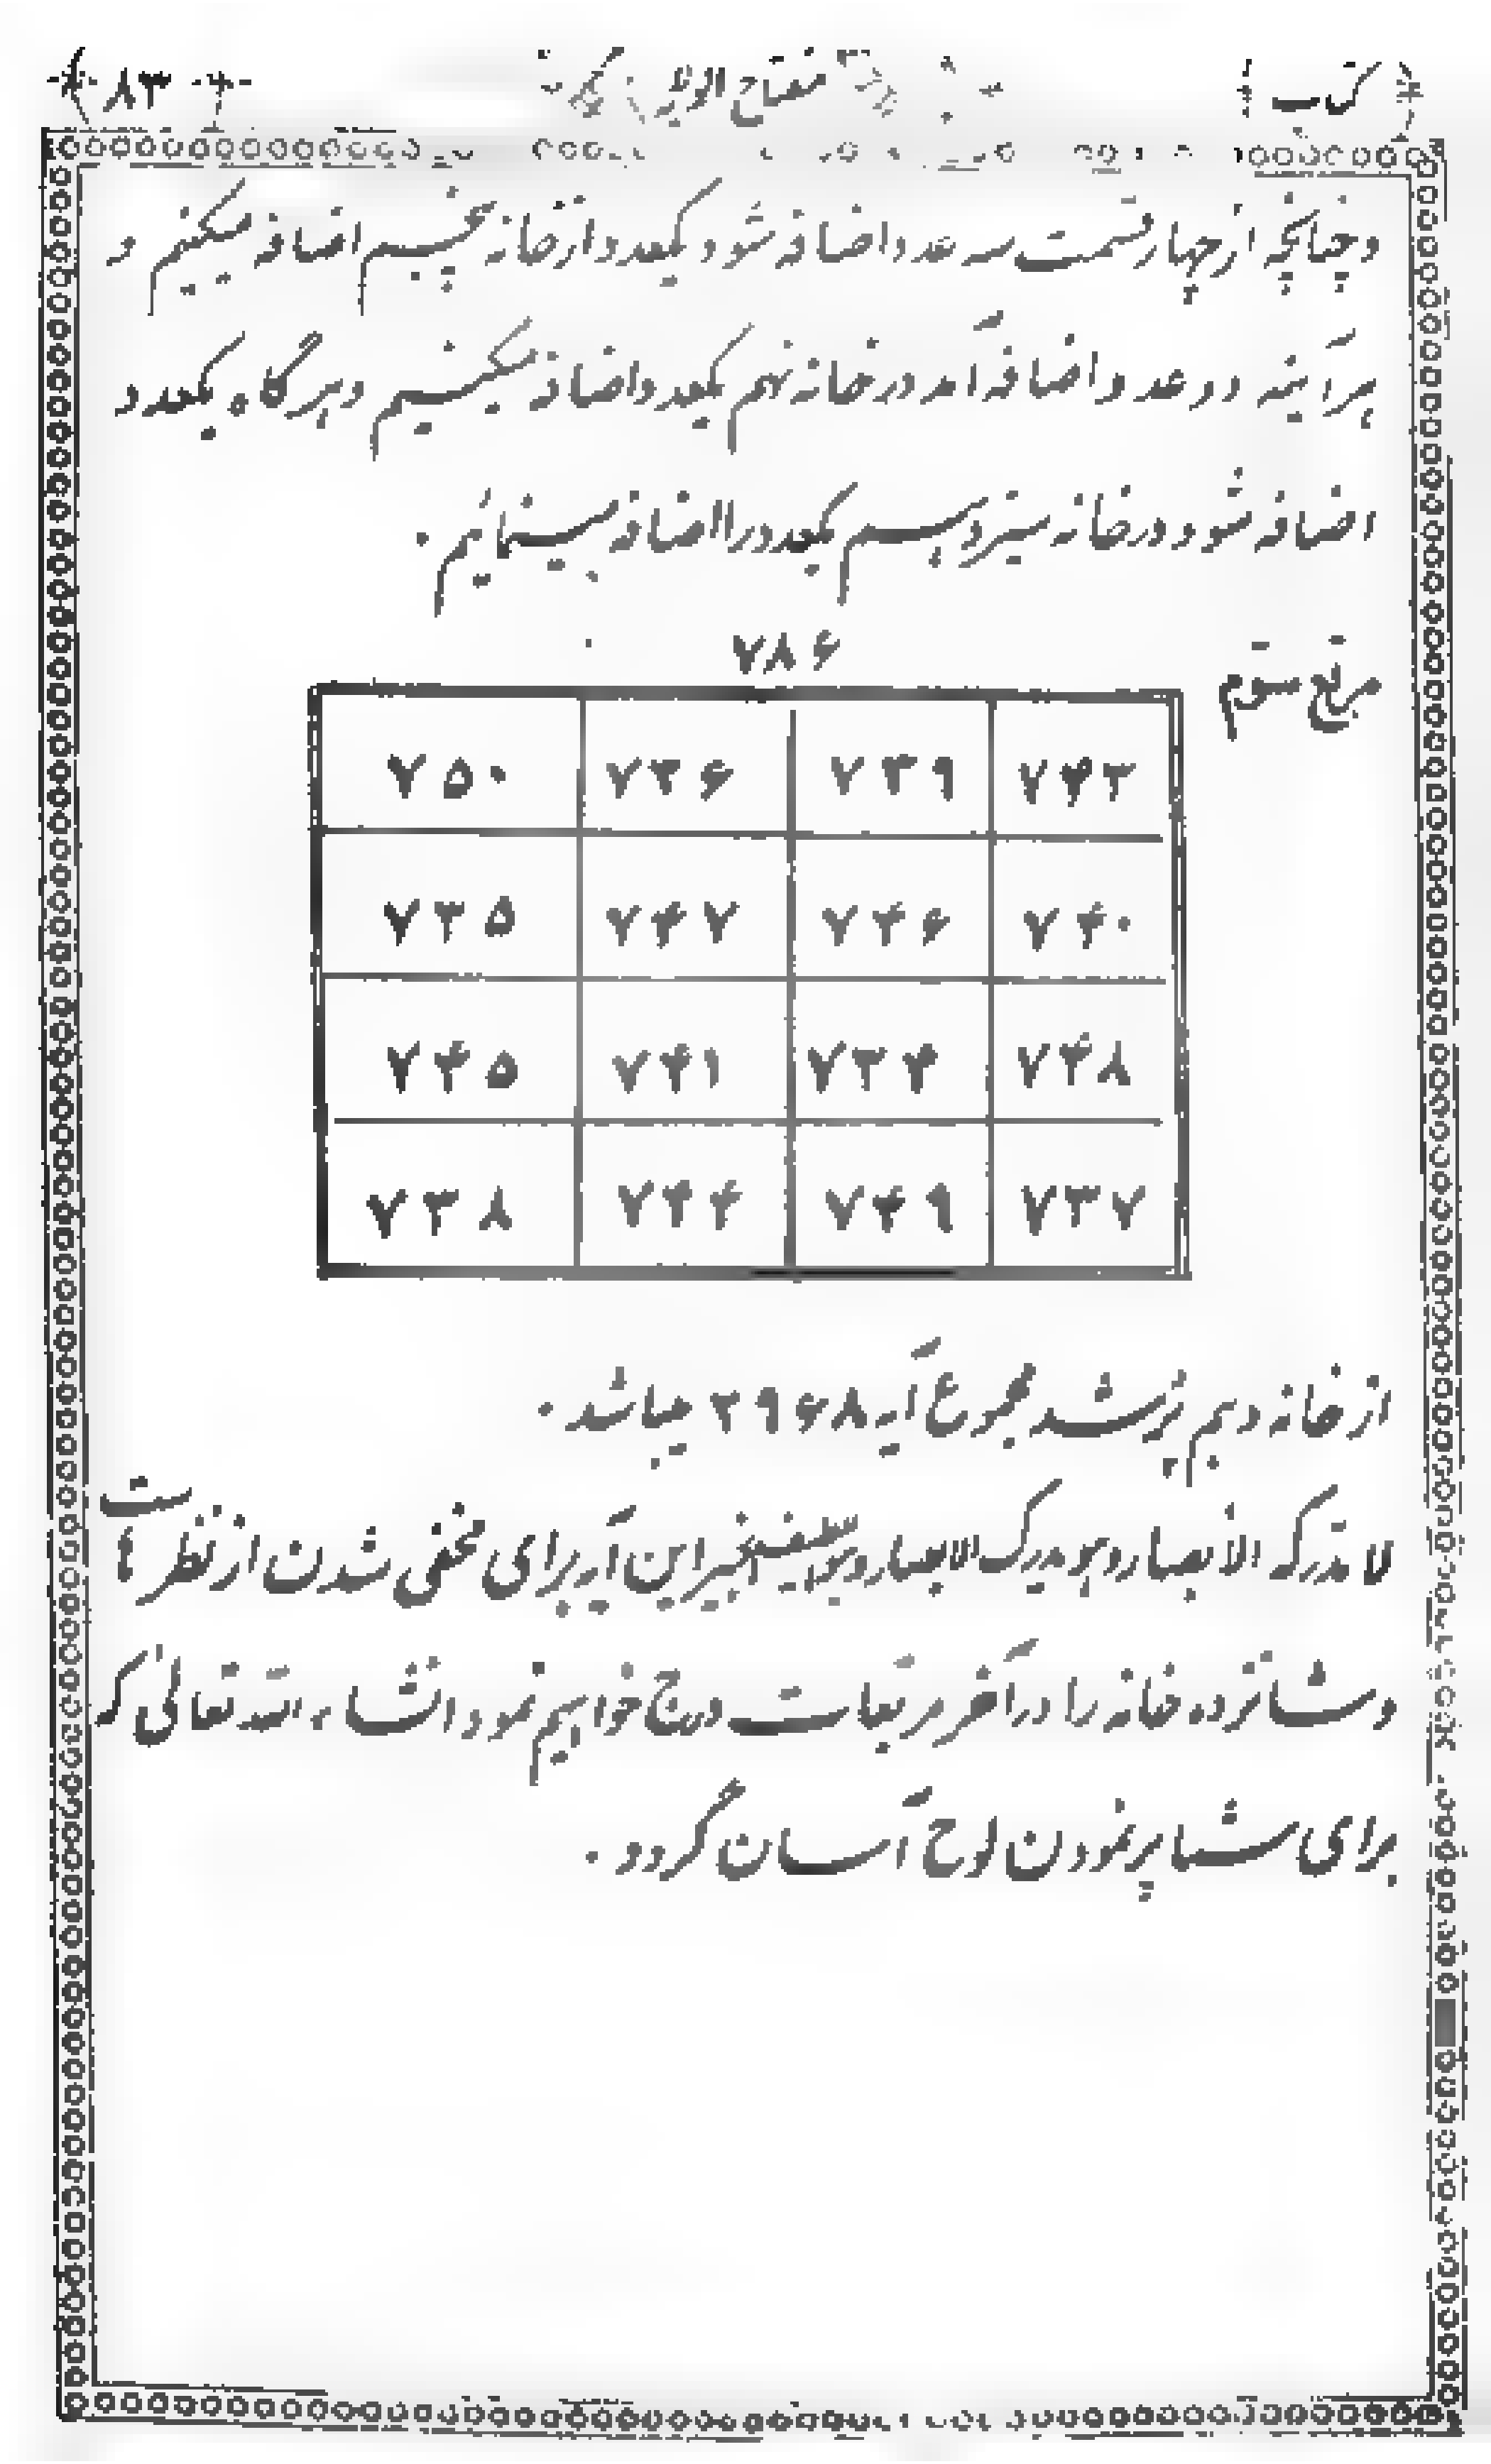 کتاب مفتاح ۸۳
و چنانچه از چهار قسمت سه عدد اضافه شود یکعدد از خانه پنجم اضافه میکنیم و
هر آینه دو عدد اضافه آمد در خانه نهم یکعدد اضافه میکنیم و هر گاه یکعدد
اضافه شود در خانه سیزدهم یکعدد را اضافه مینمائیم .
۷۸۶
مربع سوم
۷۴۳ ۷۳۹ ۷۳۶ ۷۵۰
۷۴۰ ۷۴۶ ۷۴۷ ۷۳۵
۷۴۸ ۷۳۴ ۷۴۱ ۷۴۵
۷۳۷ ۷۴۹ ۷۴۴ ۷۳۸
از خانه دهم پر شد مجموع آیه ۲۹۶۸ میباشد .
لا تدرکه الابصار و هو یدرک الابصار و هو اللطیف الخبیر این آیه برای مخفی شدن از نظرهاست
و شانزده خانه را در آخر مربعات درج خواهیم نمود انشاء الله تعالی که
برای شما پر نمودن لوح آسان گردد .